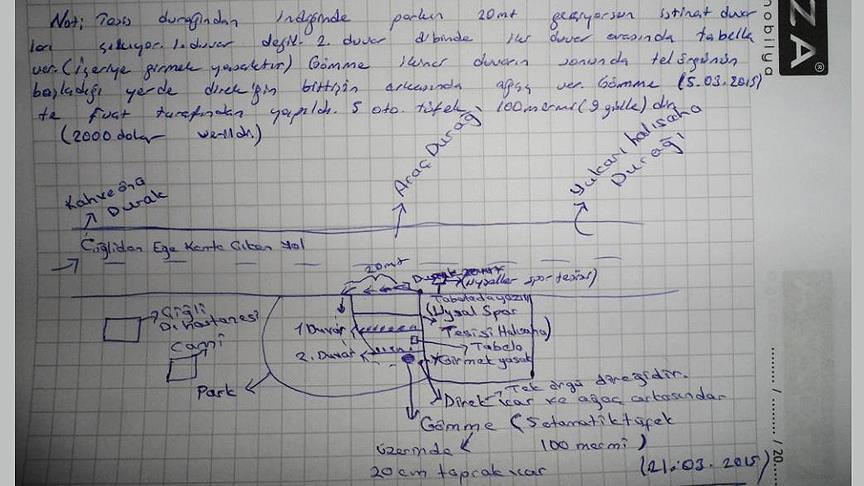 Not; Tesis durağından indiğinde parkın 20mt geçiyorsun istinat duvar
ları çıkıyor. 1. duvar değil. 2. duvar dibinde iki duvar arasında tabella
var. (içeriye girmek yasaktır) Gömme ikinci duvarın sonunda tel örgünün
başladığı yerde direğin bittiğin arkasında ağaç var. Gömme (5.03.2015)
te fuat tarafından yapıldı. 5 oto. tüfek, 100 mermi (9 gülle) dir
(2000 dolar verildi.)
ZA®
mobilya
Kahveönü
Durak
Araç Durağ
Yukarı halısaha
Durağı
Çiğliden Ege Kente Çıkan yol
20mt
Durak
(Uysallar spor tesisi)
Tabeladayazılı
(Uysal Spor
Tesisi Halısaha)
Çiğli
Dihastanesi
1. Duvar
Tabela
Cami
2. Duvar
Girmek yasak
Park
Tek örgü direğidir.
Direk var ve ağaç arkasından
Gömme (5 otomatik tüfek
100 mermi)
üzerinde
20 cm toprak var
(21.03.2015)
......... / ......... / 20.....